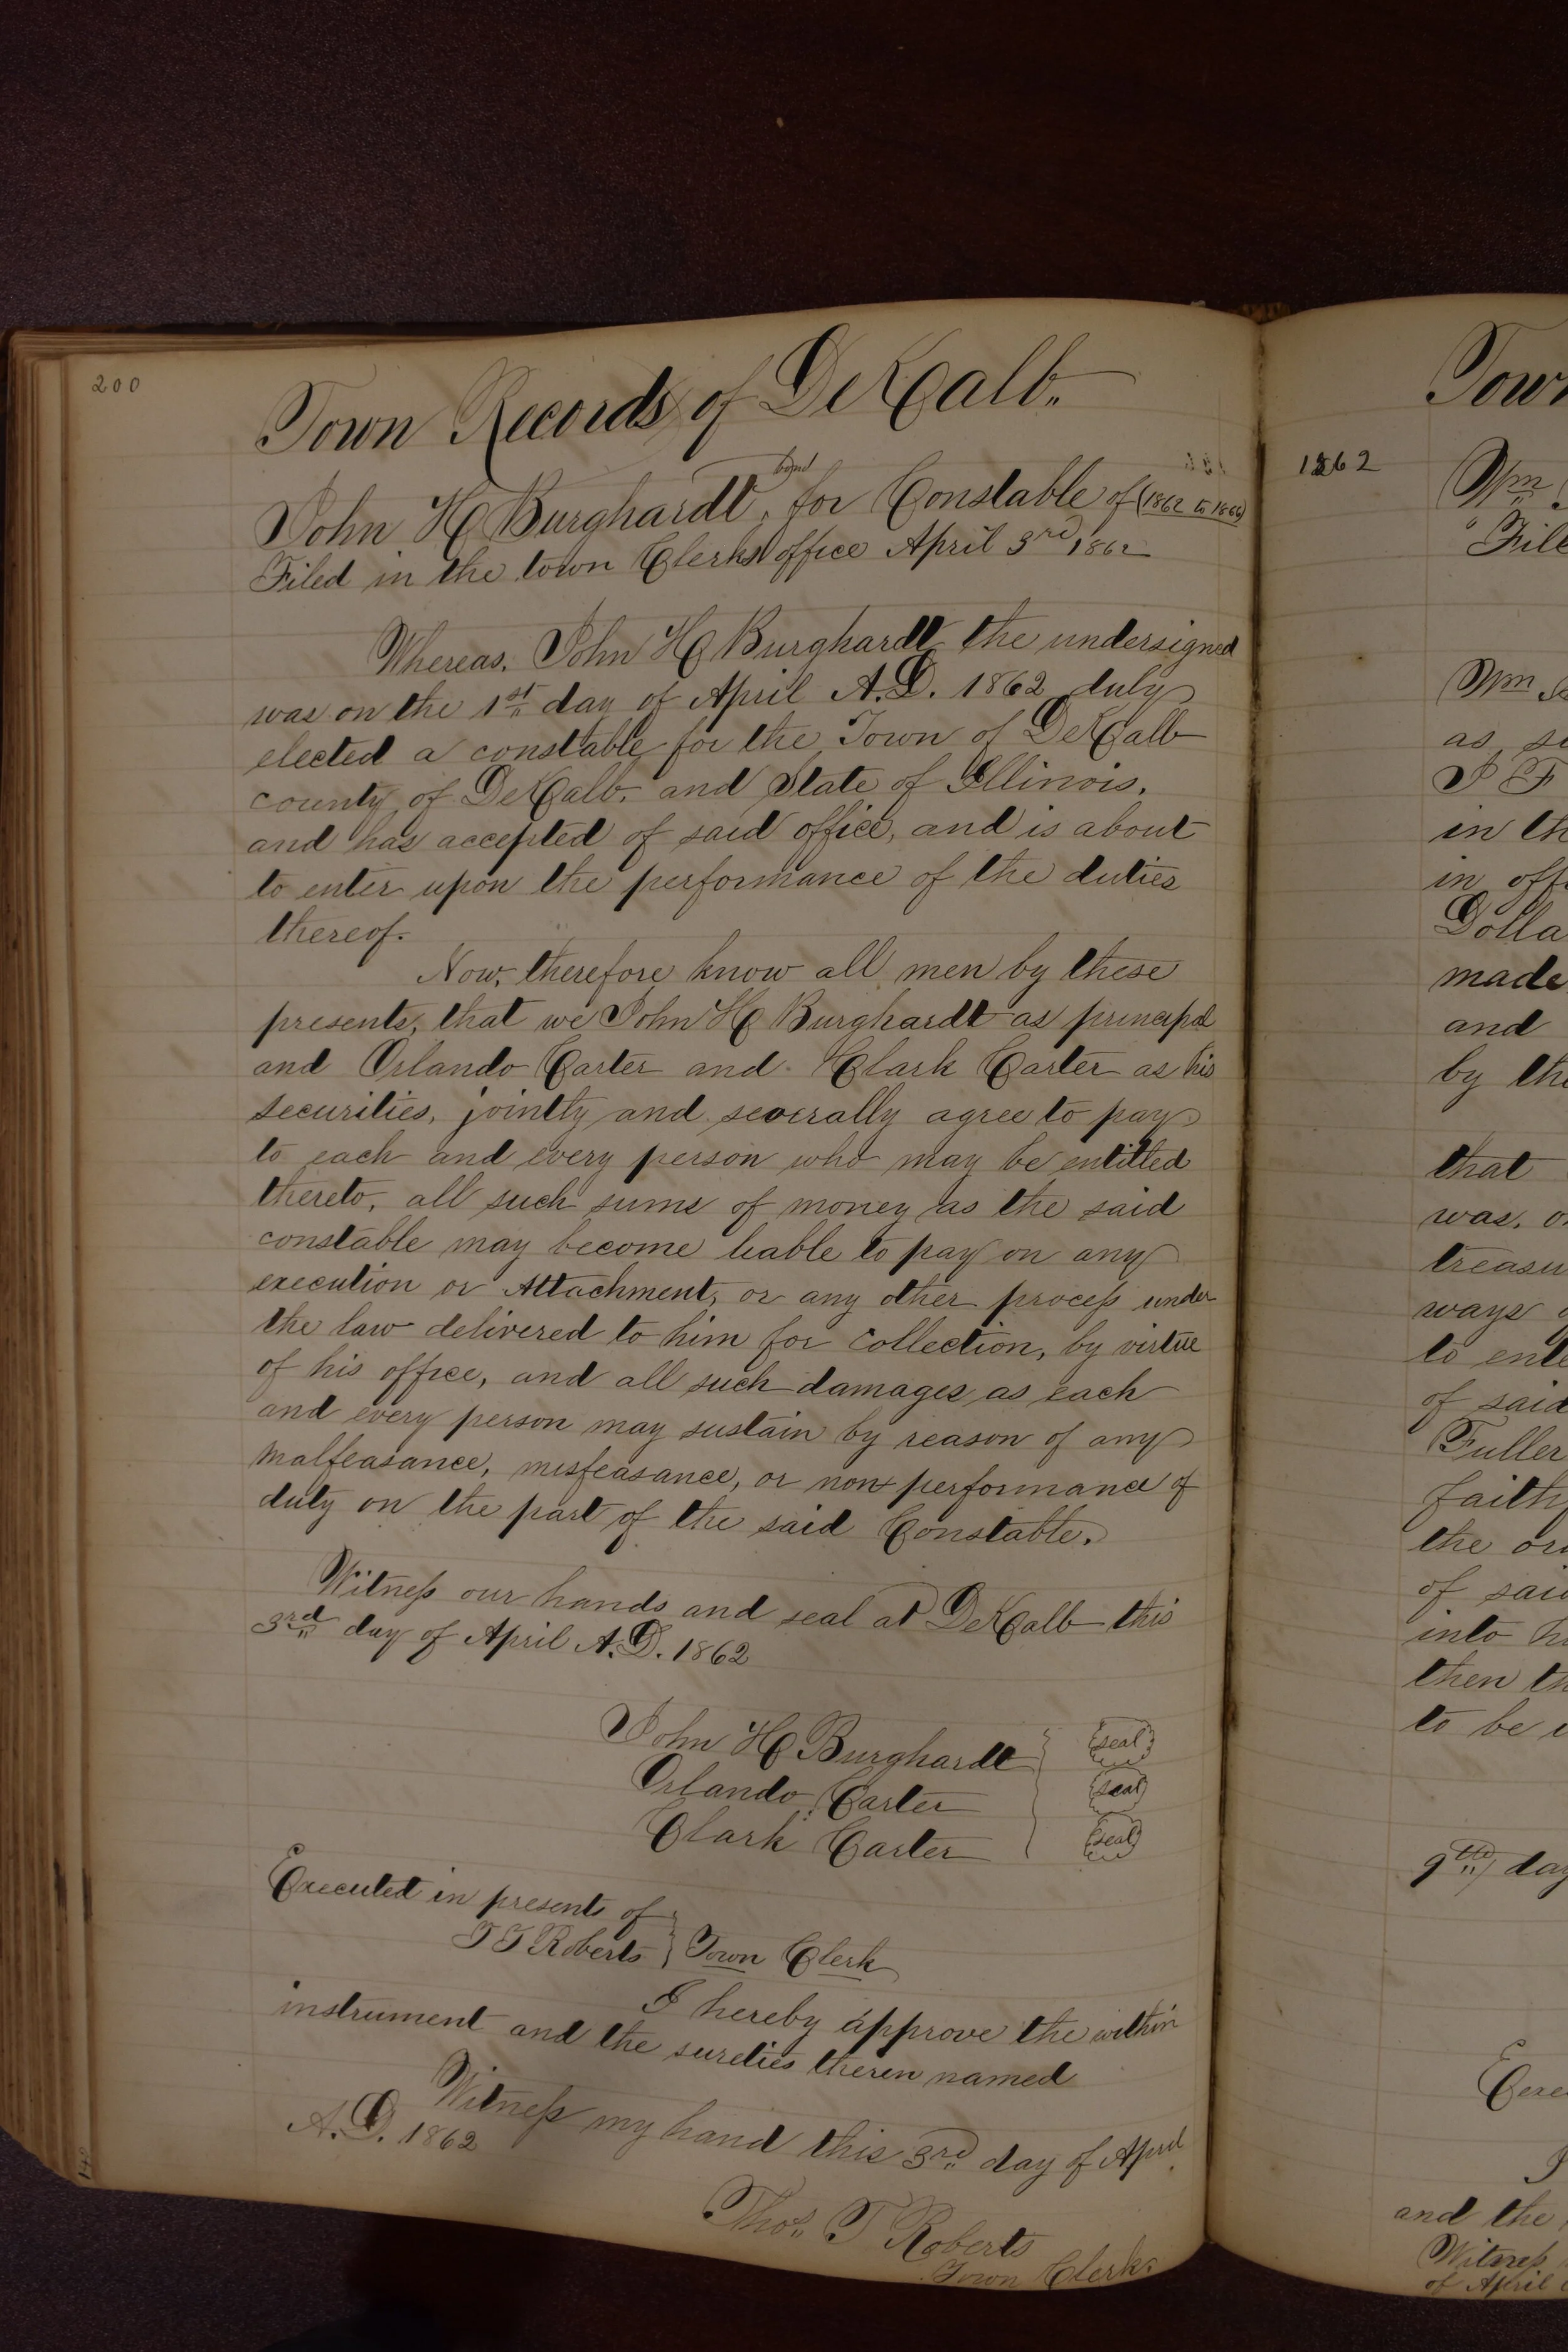 200
Town Records of DeKalb.
bond
John H Burghardt, for Constable of (1862 to 1866)
Filed in the town Clerks office April 3rd 1862
Whereas, John H Burghardt the undersigned
was on the 1st day of April A.D. 1862 duly
elected a constable for the Town of DeKalb
county of DeKalb, and State of Illinois,
and has accepted of said office, and is about
to enter upon the performance of the duties
thereof.
Now, therefore know all men by these
presents, that we John H Burghardt as principal
and Orlando Carter and Clark Carter as his
securities, jointly and severally agree to pay
to each and every person who may be entitled
thereto, all such sums of money as the said
constable may become liable to pay on any
execution or Attachment, or any other process under
the law delivered to him for collection, by virtue
of his office, and all such damages as each
and every person may sustain by reason of any
malfeasance, misfeasance, or non performance of
duty on the part of the said Constable.
Witness our hands and seal at DeKalb this
3rd day of April A.D. 1862
John H Burghardt seal
Orlando Carter seal
Clark Carter seal
Executed in presents of
T T Roberts } Town Clerk
I hereby approve the within
instrument and the sureties therein named
Witness my hand this 3rd day of April
A.D. 1862
Thos. T Roberts
Town Clerk.
Town
1862
Wm
File
Wm
as
in th
in off
Dolla
made
and
by the
that
was. o
treasu
ways
to ente
of said
Fuller
faith
the or
of said
into h
then th
to be
9th day
Exe
and the
Witness
of April